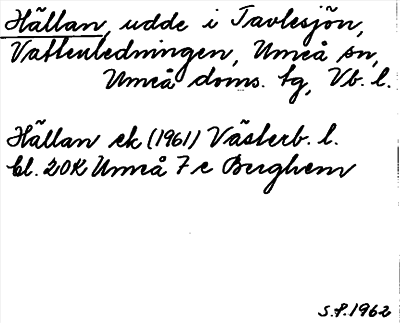 Hällan, udde i Tavlesjön,
Vattenledningen, Umeå sn,
Umeå doms. tg, Vb. l.
Hällan ek (1961) Västerb. l.
bl. 20K Umeå 7 c Berghem
S.F. 1962